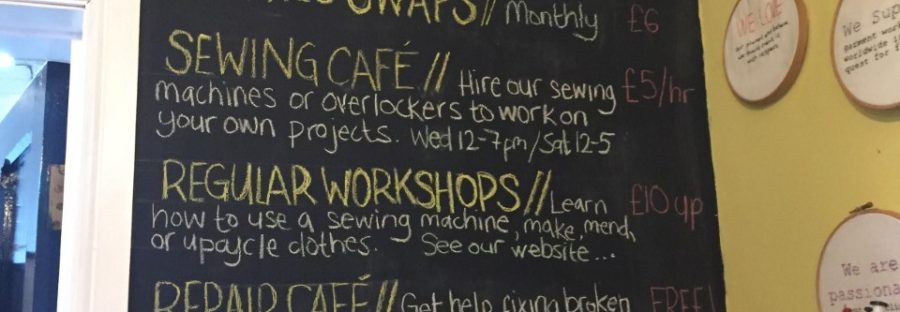 SWAPS// Monthly £6
SEWING CAFÉ// Hire our sewing £5/hr
machines or overlockers to work on
your own projects. Wed 12-7pm/Sat 12-5
REGULAR WORKSHOPS// Learn £10 up
how to use a sewing machine, make, mend,
or upcycle clothes. See our website...
REPAIR CAFÉ// Get help fixing broken FREE!
WE LOVE
We Supp
garment work
worldwide in
quest for f
We are
passiona